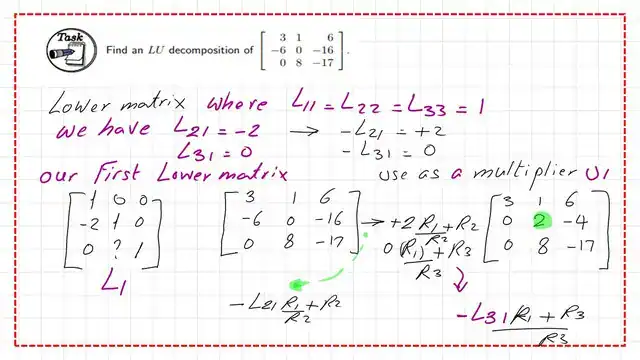 Task
Find an LU decomposition of [ 3 1 6
-6 0 -16
0 8 -17 ].
Lower matrix where L11 = L22 = L33 = 1
we have L21 = -2 → -L21 = +2
L31 = 0 -L31 = 0
our First Lower matrix use as a multiplier U1
[ 1 0 0
-2 1 0
0 ? 1 ]
L1
[ 3 1 6
-6 0 -16
0 8 -17 ]
→ +2R1+R2
R2
0(R1)+R3
R3
[ 3 1 6
0 2 -4
0 8 -17 ]
-L21 R1+R2
R2
-L31 R1 + R3
R3